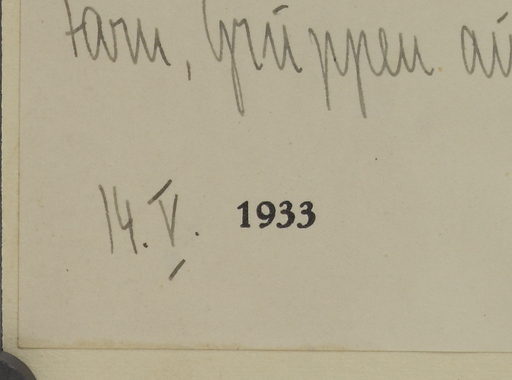 tarn, Gruppen
14. V. 1933